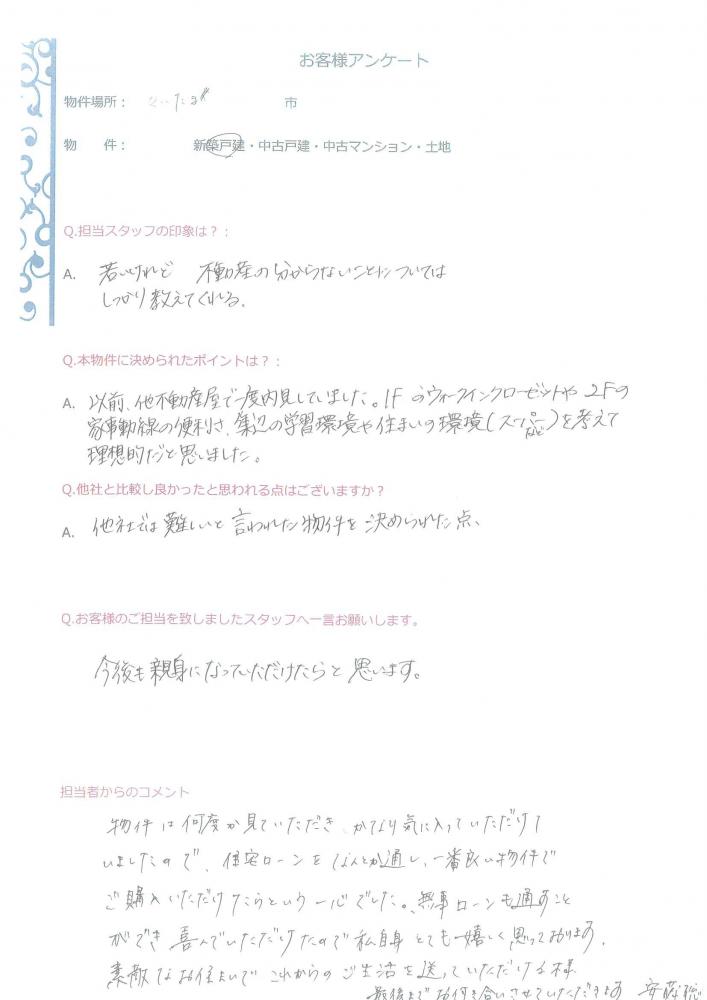 お客様アンケート
物件場所： 市
物　件： 新築戸建・中古戸建・中古マンション・土地
Q.担当スタッフの印象は？：
A. 若いけれど 不動産の分からないことについては
しっかり教えてくれる。
Q.本物件に決められたポイントは？：
A. 以前、他不動産屋で一度内見していました。1Fのウォークインクローゼットや2Fの
家事動線の便利さ、周辺の学習環境や住まいの環境(スーパーなど)を考えて
理想的だと思いました。
Q.他社と比較し良かったと思われる点はございますか？
A. 他社では難しいと言われた物件を決められた点、
Q.お客様のご担当を致しましたスタッフへ一言お願いします。
今後も親身になっていただけたらと思います。
担当者からのコメント
物件は何度か見ていただき、かなり気に入っていただけて
いましたので、住宅ローンをなんとか通し、一番良い物件で
ご購入いただけたらという一心でした。無事ローンも通すこと
ができ喜んでいただけたので私自身とても嬉しく思っております。
素敵なお住まいでこれからのご生活を送っていただける様
最後までお付き合いさせていただきます 安藤